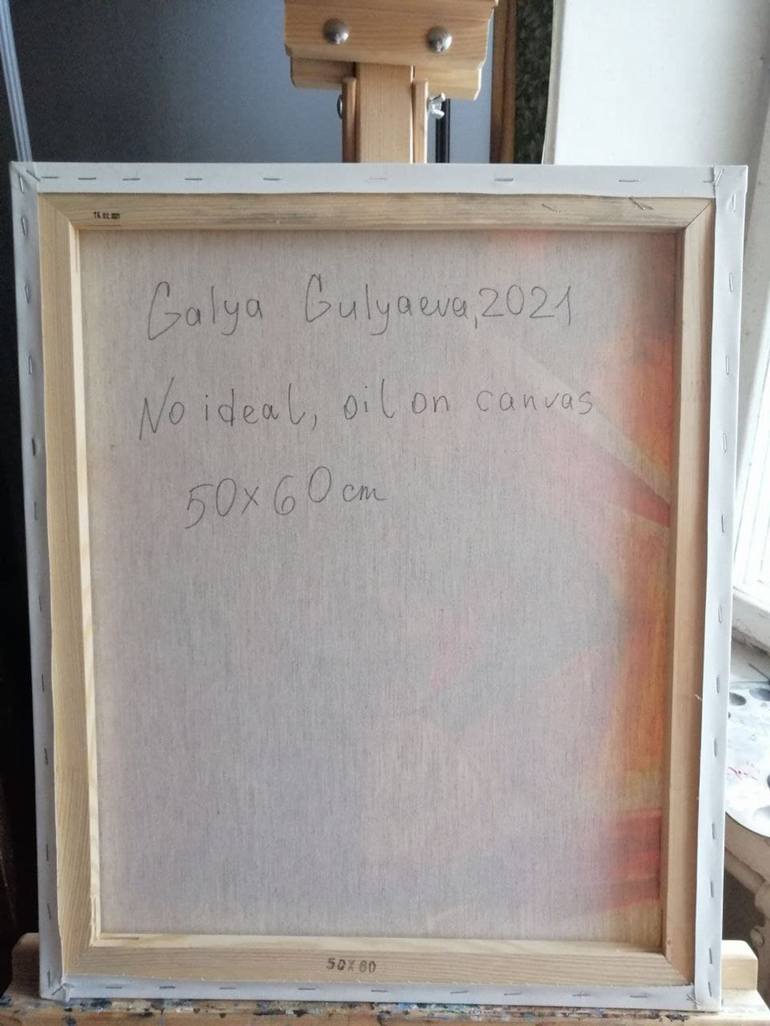 Galya Gulyaeva, 2021
No ideal, oil on canvas
50x60 cm
50X60